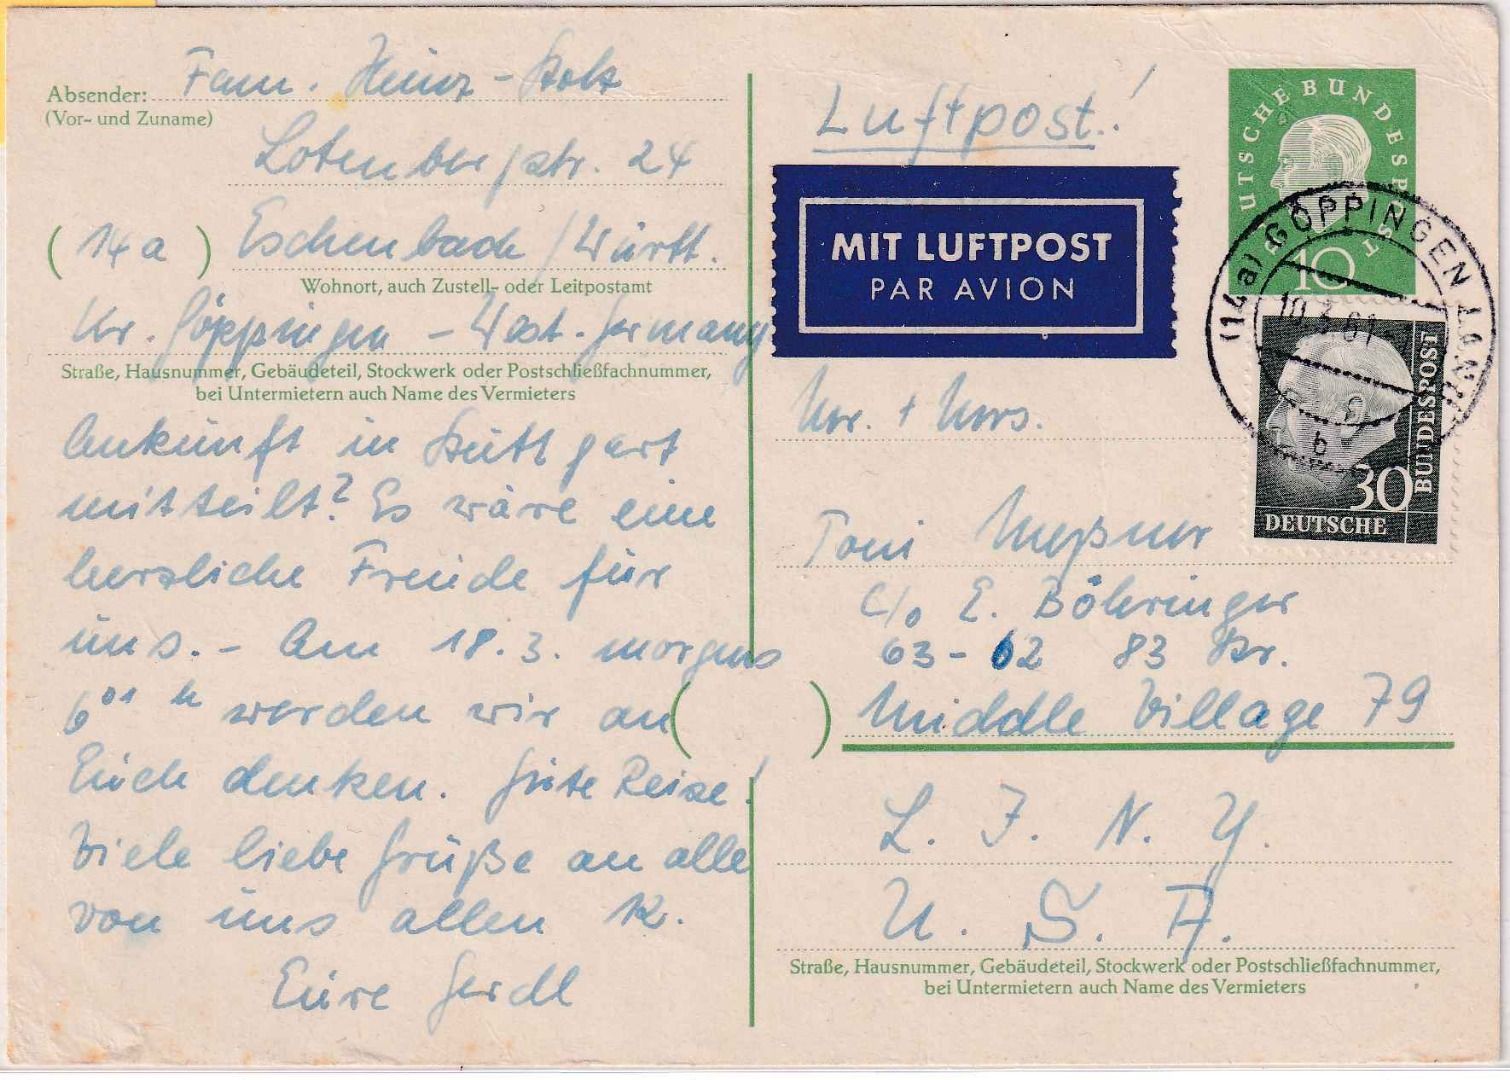 Absender: Fam. Heinz-Holz
(Vor- und Zuname)
Lotenbergstr. 24
(14a) Eschenbach/Württ.
Wohnort, auch Zustell- oder Leitpostamt
Kr. Göppingen – West-Germany
Straße, Hausnummer, Gebäudeteil, Stockwerk oder Postschließfachnummer,
bei Untermietern auch Name des Vermieters
Ankunft in Stuttgart
mitteilt? Es wäre eine
herzliche Freude für
uns. – Am 18.3. morgens
6⁰¹ h werden wir an
Euch denken. Gute Reise!
Viele liebe Grüße an alle
von uns allen K.
Eure Gerdl
Luftpost!
MIT LUFTPOST
PAR AVION
DEUTSCHE BUNDESPOST
10
(14a) GÖPPINGEN
10.3.61
b
30
DEUTSCHE
BUNDESPOST
Mr. + Mrs.
Toni Meßner
c/o E. Böhringer
63-62 83 Str.
( ) Middle Village 79
L. I. N. Y.
U. S. A.
Straße, Hausnummer, Gebäudeteil, Stockwerk oder Postschließfachnummer,
bei Untermietern auch Name des Vermieters